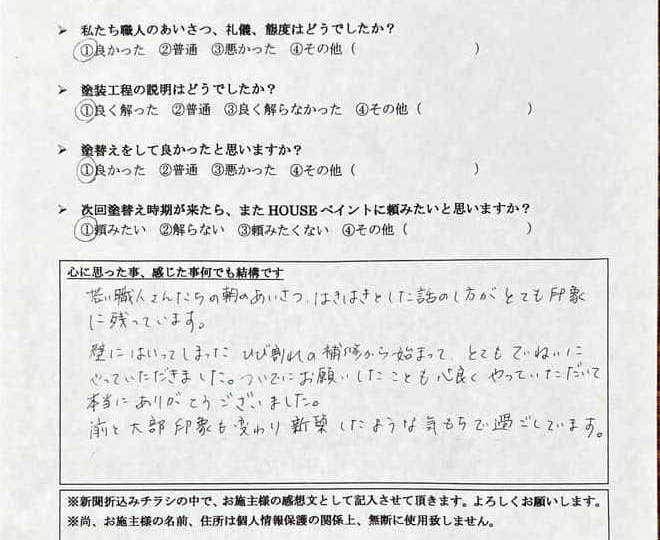 ➢ 私たち職人のあいさつ、礼儀、態度はどうでしたか？
①良かった ②普通 ③悪かった ④その他（ ）
➢ 塗装工程の説明はどうでしたか？
①良く解った ②普通 ③良く解らなかった ④その他（ ）
➢ 塗替えをして良かったと思いますか？
①良かった ②普通 ③悪かった ④その他（ ）
➢ 次回塗替え時期が来たら、また HOUSE ペイントに頼みたいと思いますか？
①頼みたい ②解らない ③頼みたくない ④その他（ ）
心に思った事、感じた事何でも結構です
若い職人さんたちの朝のあいさつ、はきはきとした話のし方がとても印象
に残っています。
壁にはいってしまった ひび割れの補修から始まって、とてもていねいに
やっていただきました。ついでにお願いしたことも心良くやっていただいて
本当にありがとうございました。
前と大部印象も変わり新築したような気もちで過ごしています。
※新聞折込みチラシの中で、お施主様の感想文として記入させて頂きます。よろしくお願いします。
※尚、お施主様の名前、住所は個人情報保護の関係上、無断に使用致しません。